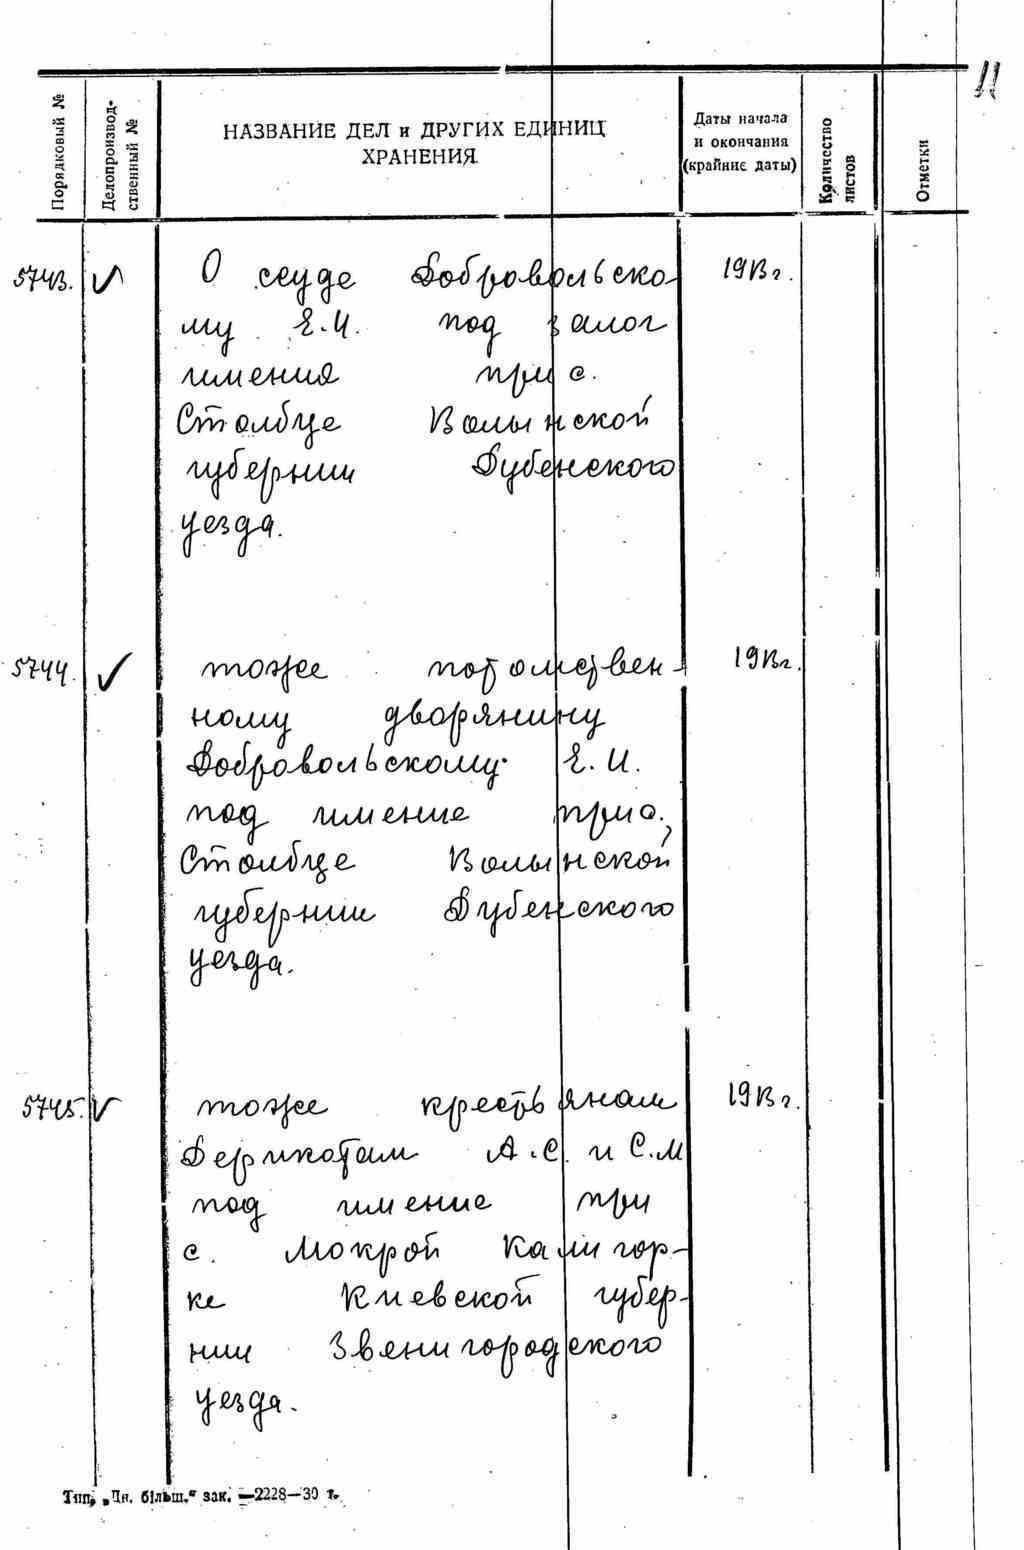 11
Порядковый №
Делопроизвод-
ственный №
НАЗВАНИЕ ДЕЛ и ДРУГИХ ЕДИНИЦ
ХРАНЕНИЯ
Даты начала
и окончания
(крайние даты)
Количество
листов
Отметки
5743. О ссуде Добровольско- 1913 г.
му Е.И. под залог
имения при с.
Столбце Волынской
губернии Дубенского
уезда.
5744. тоже потомствен- 1913г.
ному дворянину
Добровольскому Е.И.
под имение при с.
Столбце Волынской
губернии Дубенского
уезда.
5745. тоже крестьянам 1913 г.
Дерикотам А.С. и С.М
под имение при
с. Мокрой Калигор-
ке Киевской губер-
нии Звенигородского
уезда.
Тип. „Чн. більш." зак. —2228—30 т.